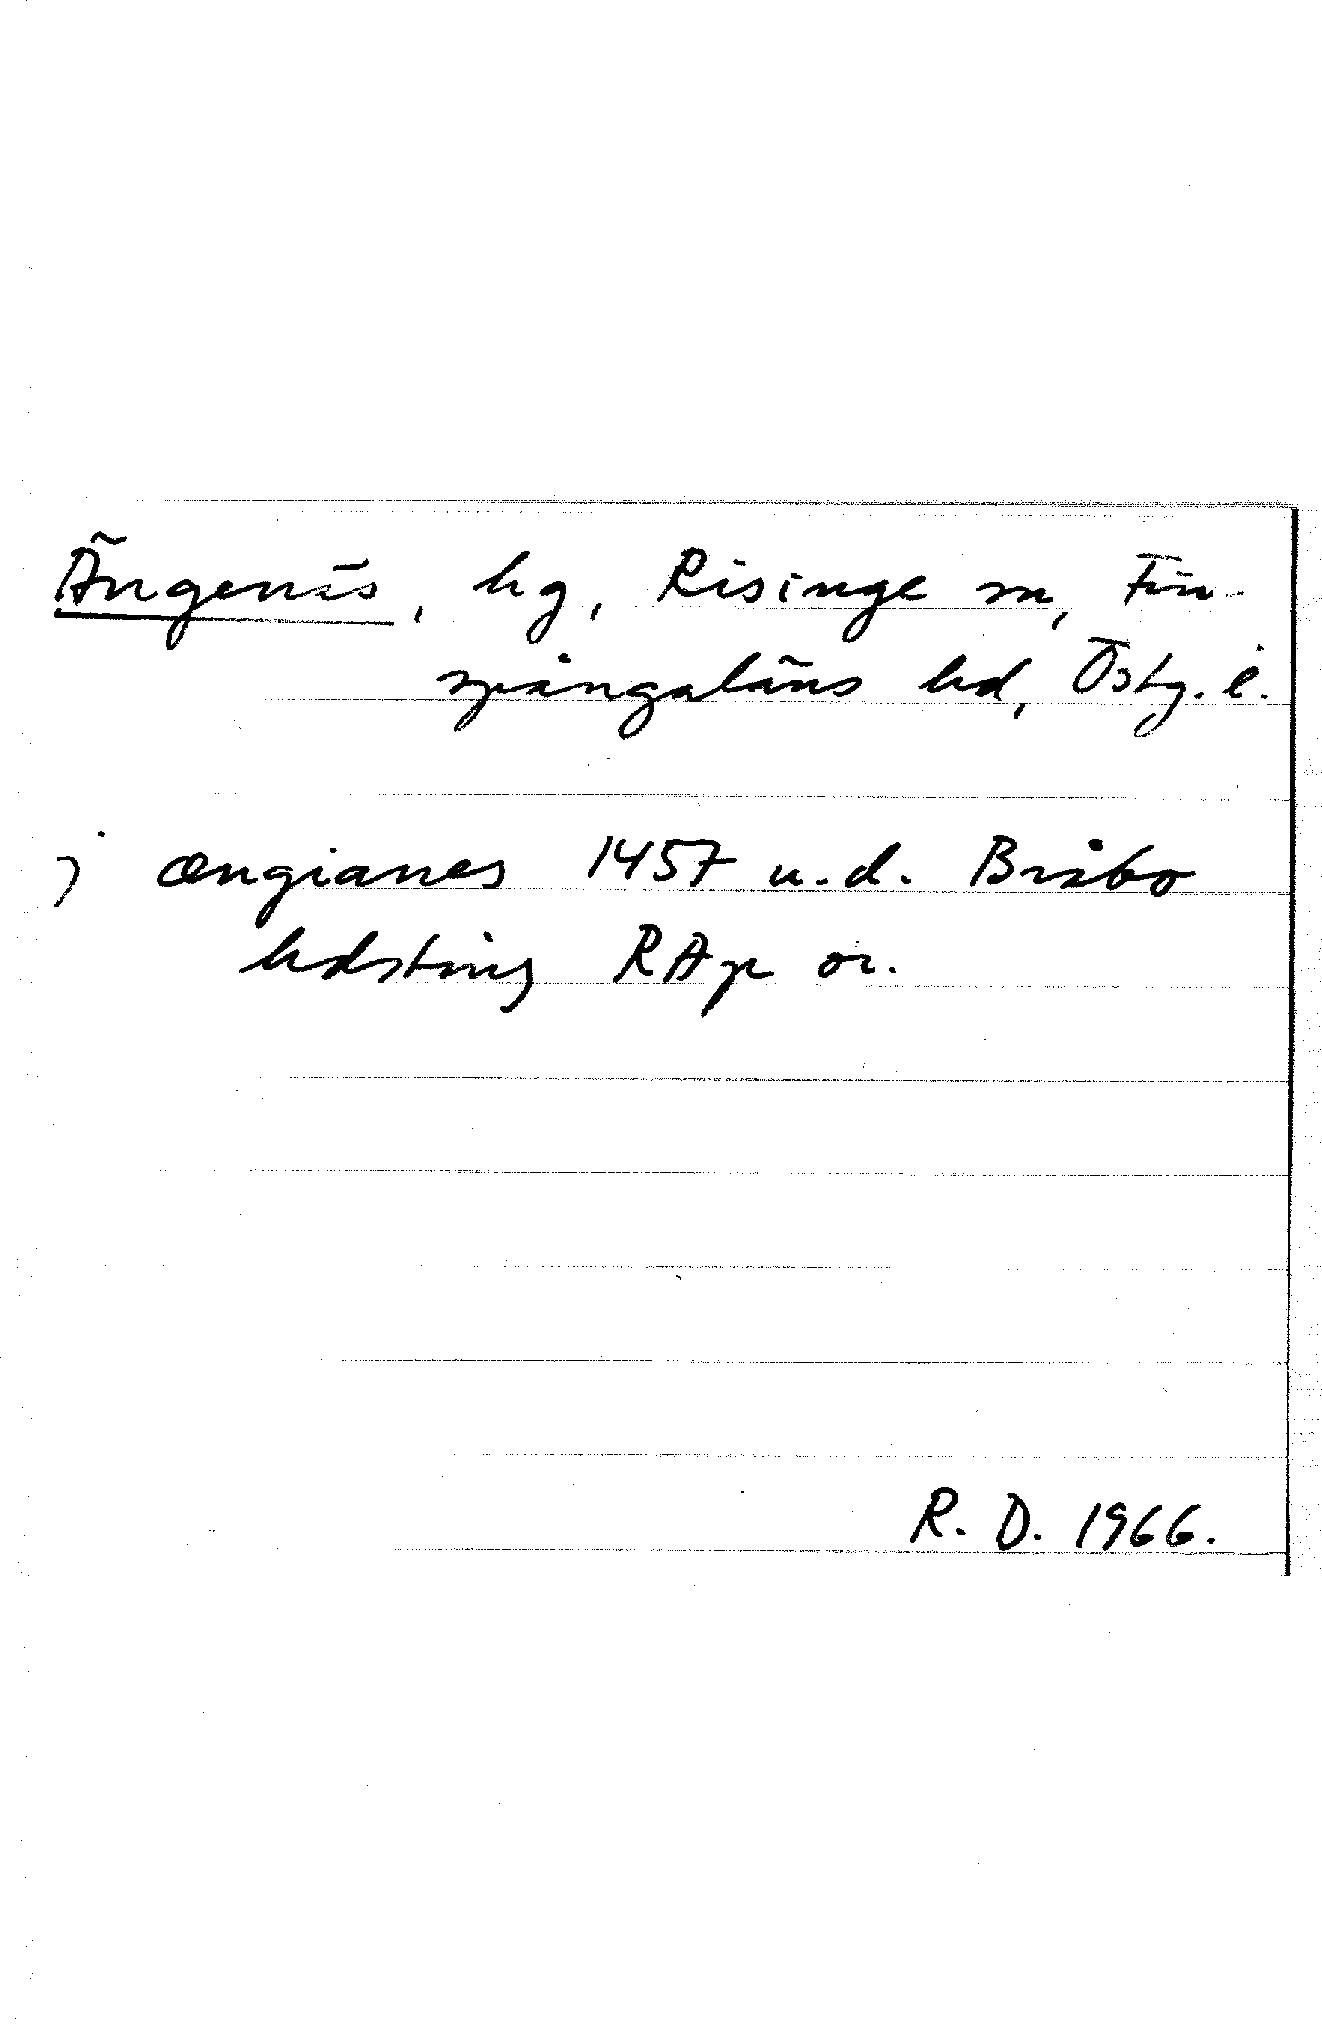 Ängenäs, hg, Risinge sn, Fin-
spångaläns hd, Östg. l.
j ængianes 1457 u.d. Bråbo
hdsting RAp or.
R. D. 1966.